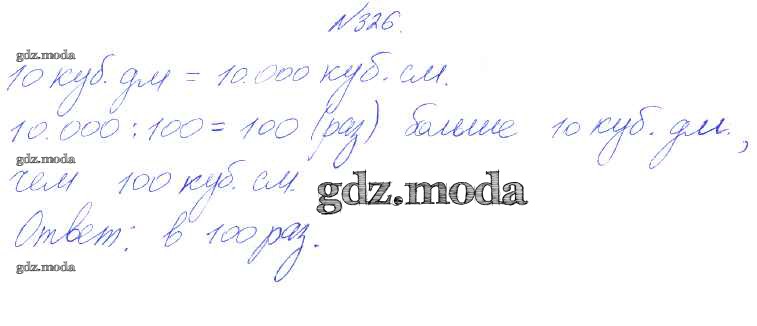 №326.
gdz.moda
10 куб. дм = 10.000 куб. см.
10.000 : 100 = 100 (раз) больше 10 куб. дм.,
gdz.moda
чем 100 куб. см.
gdz.moda
Ответ: в 100 раз.
gdz.moda